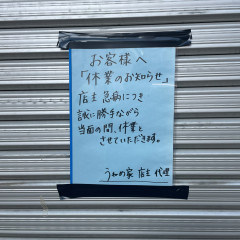 お客様へ
「休業のお知らせ」
店主 急病につき
誠に勝手ながら
当面の間、休業と
させていただきます。
うわの家 店主 代理